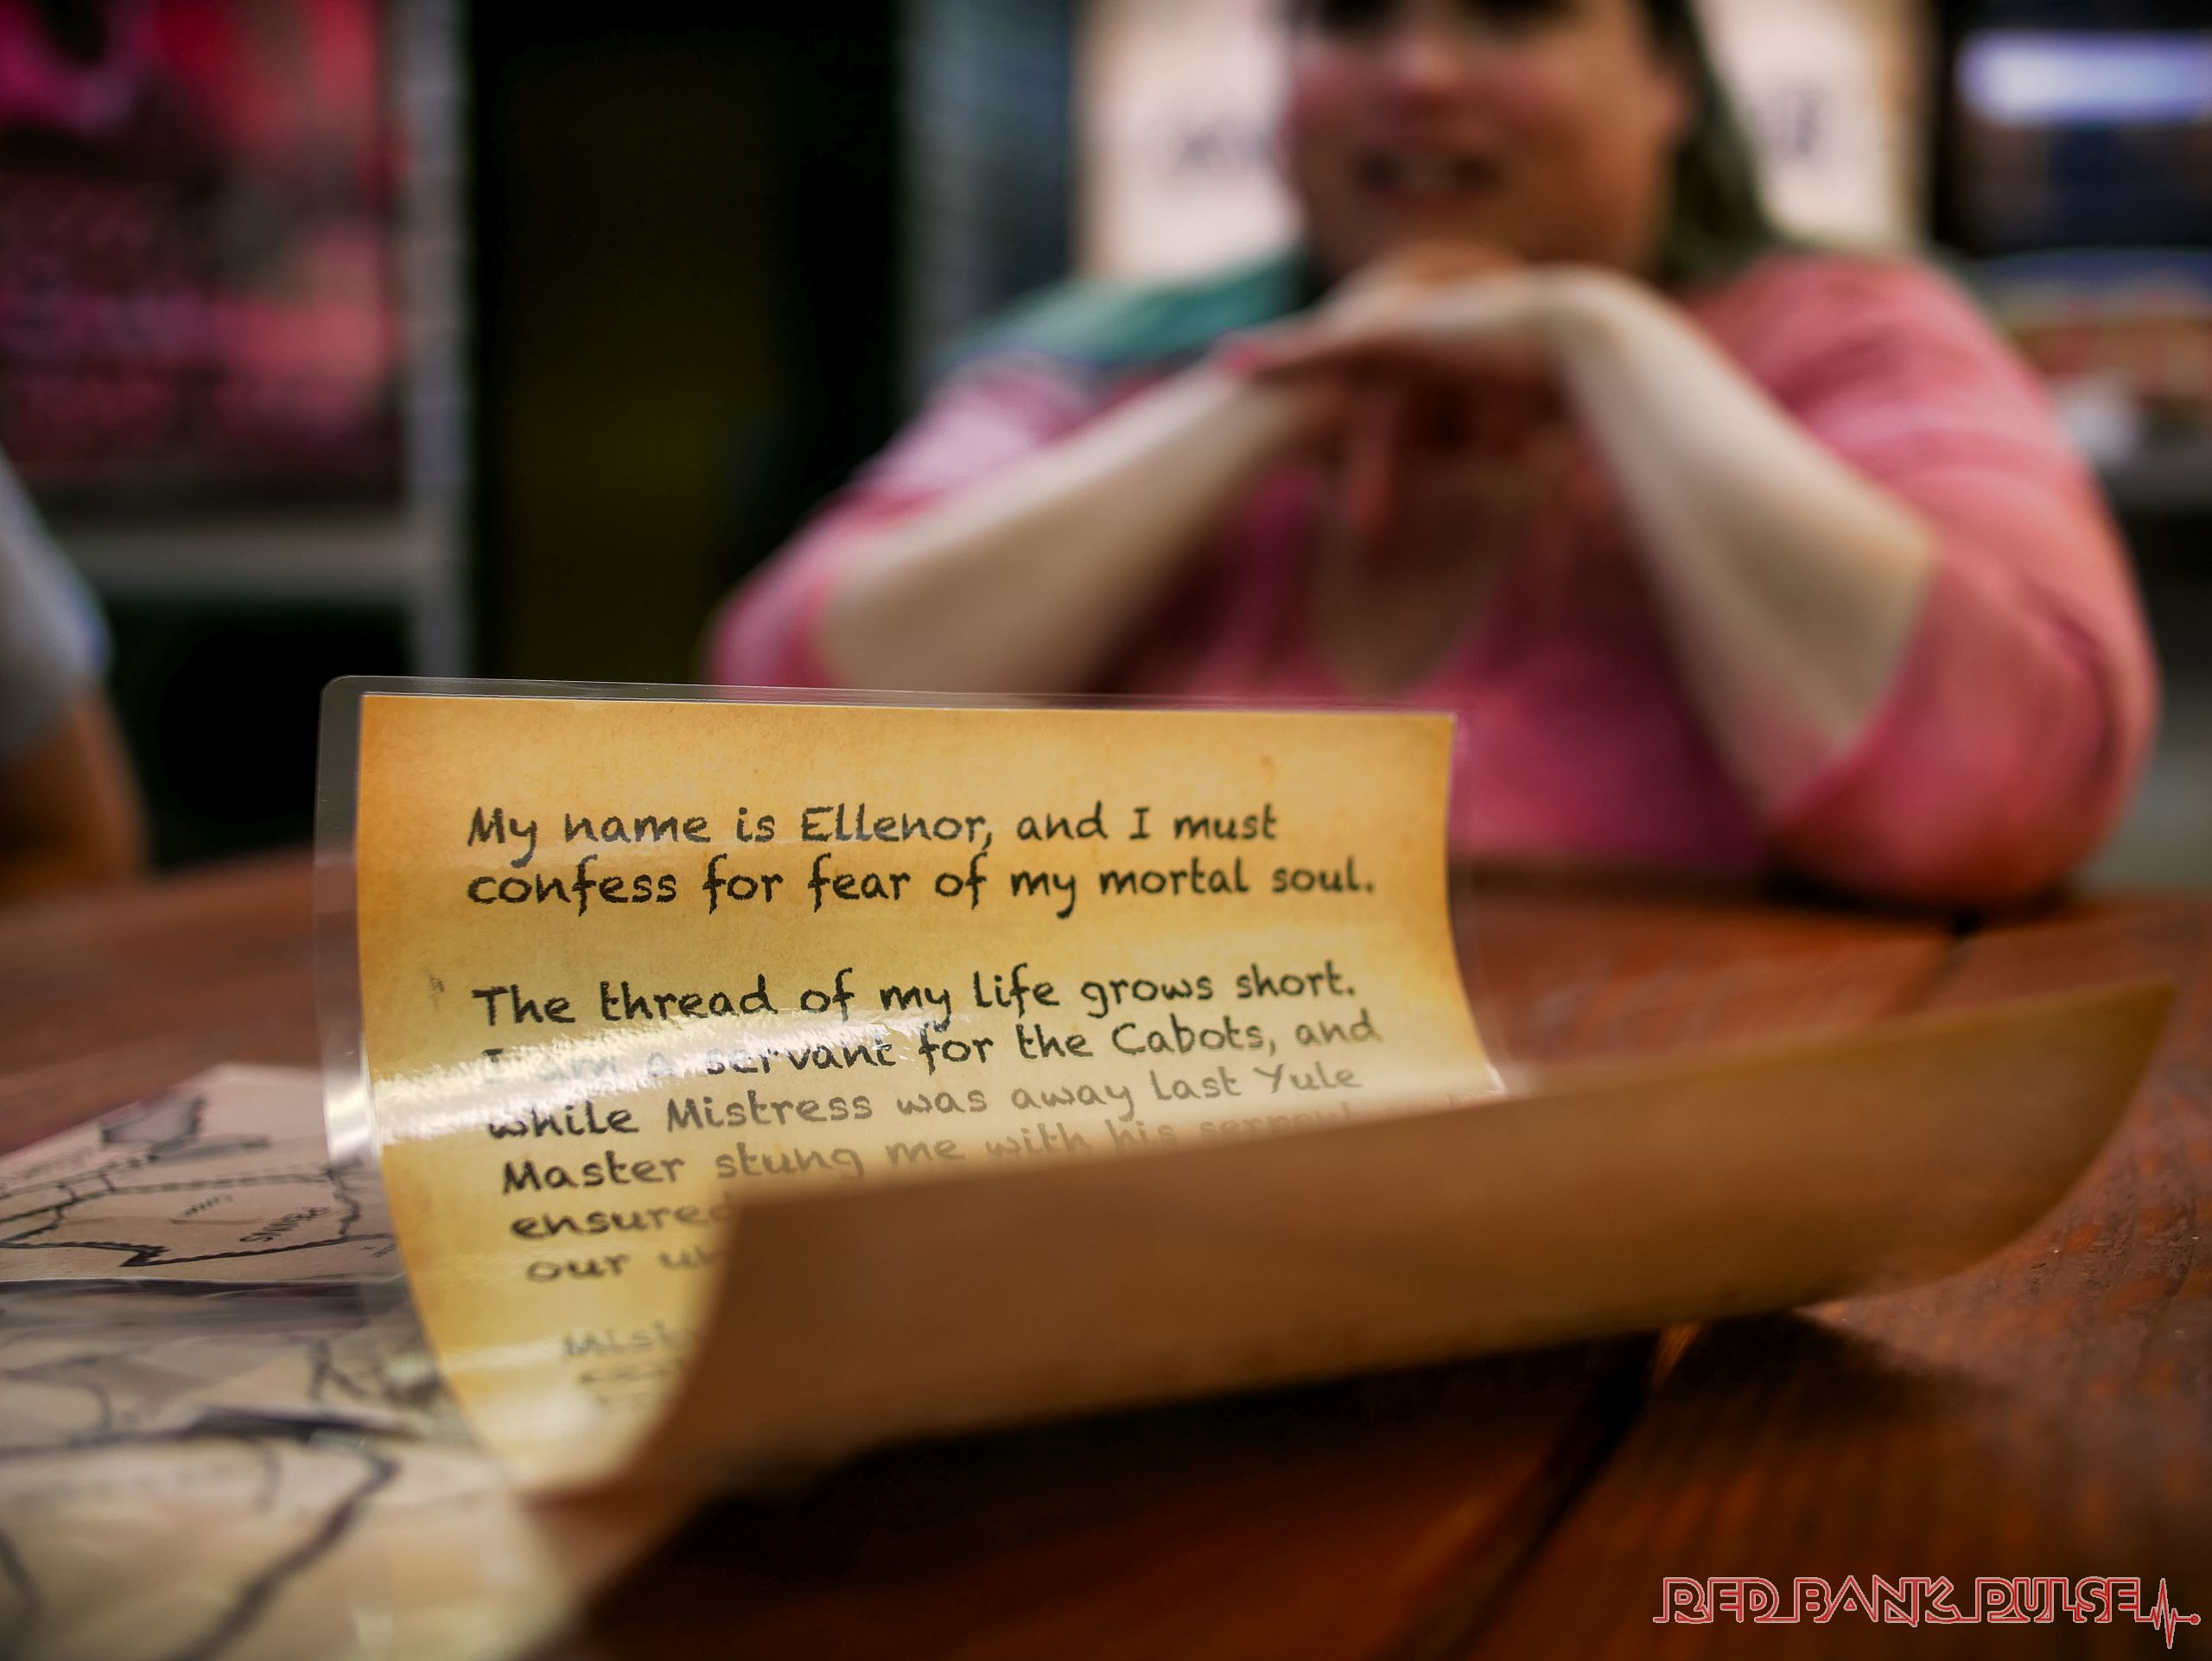 My name is Ellenor, and I must
confess for fear of my mortal soul.
The thread of my life grows short.
I am a servant for the Cabots, and
while Mistress was away last Yule
Master stung me with his
ensured
our
RED BANK PULSE